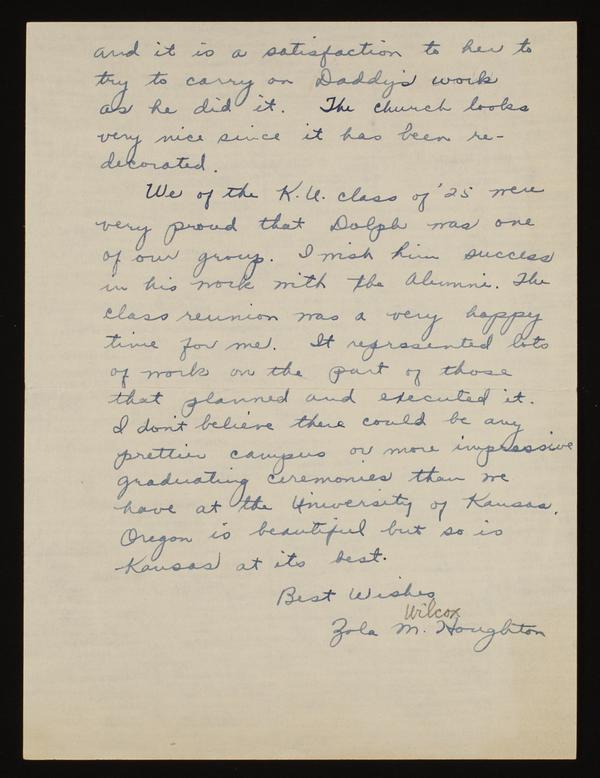 and it is a satisfaction to her to
try to carry on Daddy's work
as he did it. The church looks
very nice since it has been re-
decorated.
We of the K.U. class of '25 were
very proud that Dolph was one
of our group. I wish him success
in his work with the Alumni. The
class reunion was a very happy
time for me. It reprssented lots
of work on the part of those
that planned and executed it.
I don't believe there could be any
prettier campus or more impressive
graduating ceremonies than we
have at the University of Kansas.
Oregon is beautiful but so is
Kansas at its best.
Best Wishes
Wilcox
Zola M. Houghton